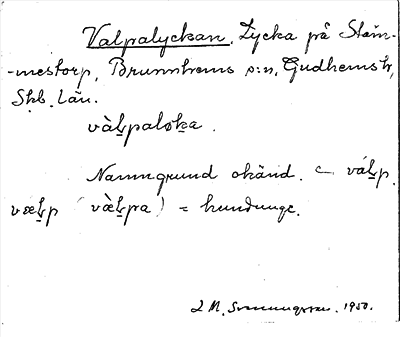 Valpalyckan. Lycka på Stom-
-mestorp, Brunnhems s:n, Gudhems h.,
Skb. län.
và̀l̥paloka.
Namngrund okänd. < vál̥p.
væl̥p (væ̀l̥pa) = hundunge.
1950.